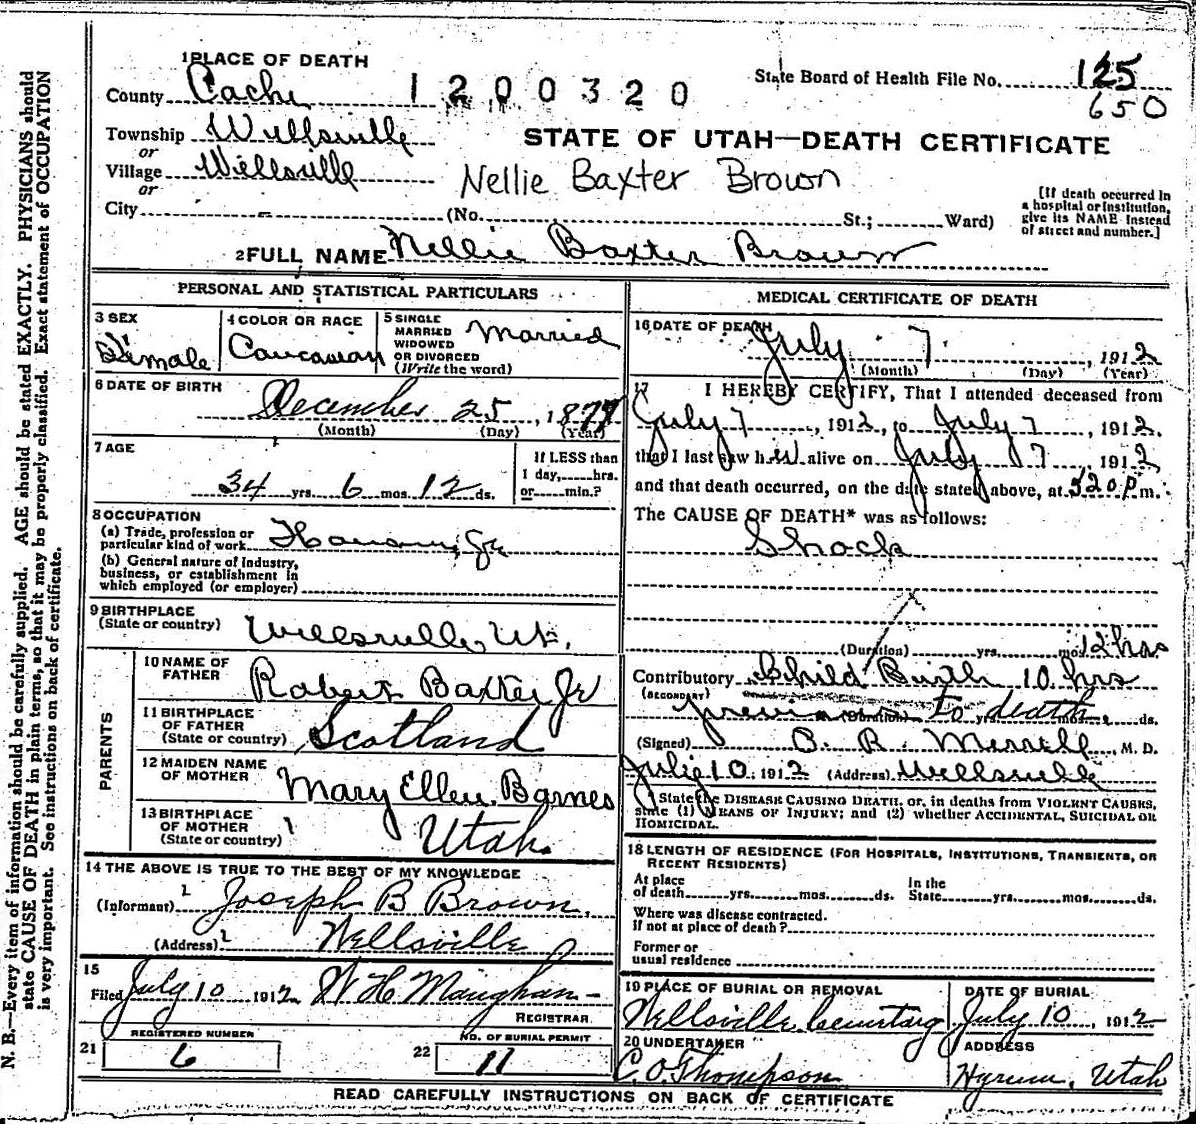 1 PLACE OF DEATH
County Cache
1200320
State Board of Health File No. 125
650
Township Wellsville
or
Village Wellsville
or
STATE OF UTAH—DEATH CERTIFICATE
Nellie Baxter Brown
City - (No. St.; Ward)
[If death occurred in a hospital or institution, give its NAME instead of street and number.]
2 FULL NAME Nellie Baxter Brown
PERSONAL AND STATISTICAL PARTICULARS
3 SEX
Female
4 COLOR OR RACE
Caucasian
5 SINGLE
MARRIED
WIDOWED
OR DIVORCED
(Write the word)
Married
6 DATE OF BIRTH
December 25, 1877
(Month) (Day) (Year)
7 AGE
34 yrs. 6 mos. 12 ds.
If LESS than
1 day, hrs.
or min.?
8 OCCUPATION
(a) Trade, profession or
particular kind of work
(b) General nature of industry,
business, or establishment in
which employed (or employer)
9 BIRTHPLACE
(State or country) Wellsville, Ut.
PARENTS
10 NAME OF
FATHER Robert Baxter Jr
11 BIRTHPLACE
OF FATHER
(State or country) Scotland
12 MAIDEN NAME
OF MOTHER Mary Ellen Barnes
13 BIRTHPLACE
OF MOTHER
(State or country) Utah.
14 THE ABOVE IS TRUE TO THE BEST OF MY KNOWLEDGE
(Informant) Joseph B Brown
(Address) Wellsville
15
Filed July 10 1912 W H Maughan
REGISTRAR.
REGISTERED NUMBER
21 6
NO. OF BURIAL PERMIT
22 11
MEDICAL CERTIFICATE OF DEATH
16 DATE OF DEATH
July 7, 1912
(Month) (Day) (Year)
17 I HEREBY CERTIFY, That I attended deceased from
July 7, 1912, to July 7, 1912.
that I last saw her alive on July 7, 1912
and that death occurred, on the date stated above, at 520 p m.
The CAUSE OF DEATH* was as follows:
Shock
(Duration) yrs. mos. 12 hrs
Contributory Child Birth 10 hrs
(SECONDARY)
previous to death
(Duration) yrs. mos. ds.
(Signed) M. D.
July 10, 1912 (Address) Wellsville
State the DISEASE CAUSING DEATH, or, in deaths from VIOLENT CAUSES,
state (1) MEANS OF INJURY; and (2) whether ACCIDENTAL, SUICIDAL OR
HOMICIDAL.
18 LENGTH OF RESIDENCE (FOR HOSPITALS, INSTITUTIONS, TRANSIENTS, OR
RECENT RESIDENTS)
At place
of death yrs. mos. ds.
In the
State yrs. mos. ds.
Where was disease contracted.
If not at place of death?
Former or
usual residence
19 PLACE OF BURIAL OR REMOVAL
Wellsville Cemetary
DATE OF BURIAL
July 10, 1912
20 UNDERTAKER
C. O. Thompson
ADDRESS
Hyrum, Utah
READ CAREFULLY INSTRUCTIONS ON BACK OF CERTIFICATE
N. B.—Every item of information should be carefully supplied. AGE should be stated EXACTLY. PHYSICIANS should
state CAUSE OF DEATH in plain terms, so that it may be properly classified. Exact statement of OCCUPATION
is very important. See instructions on back of certificate.